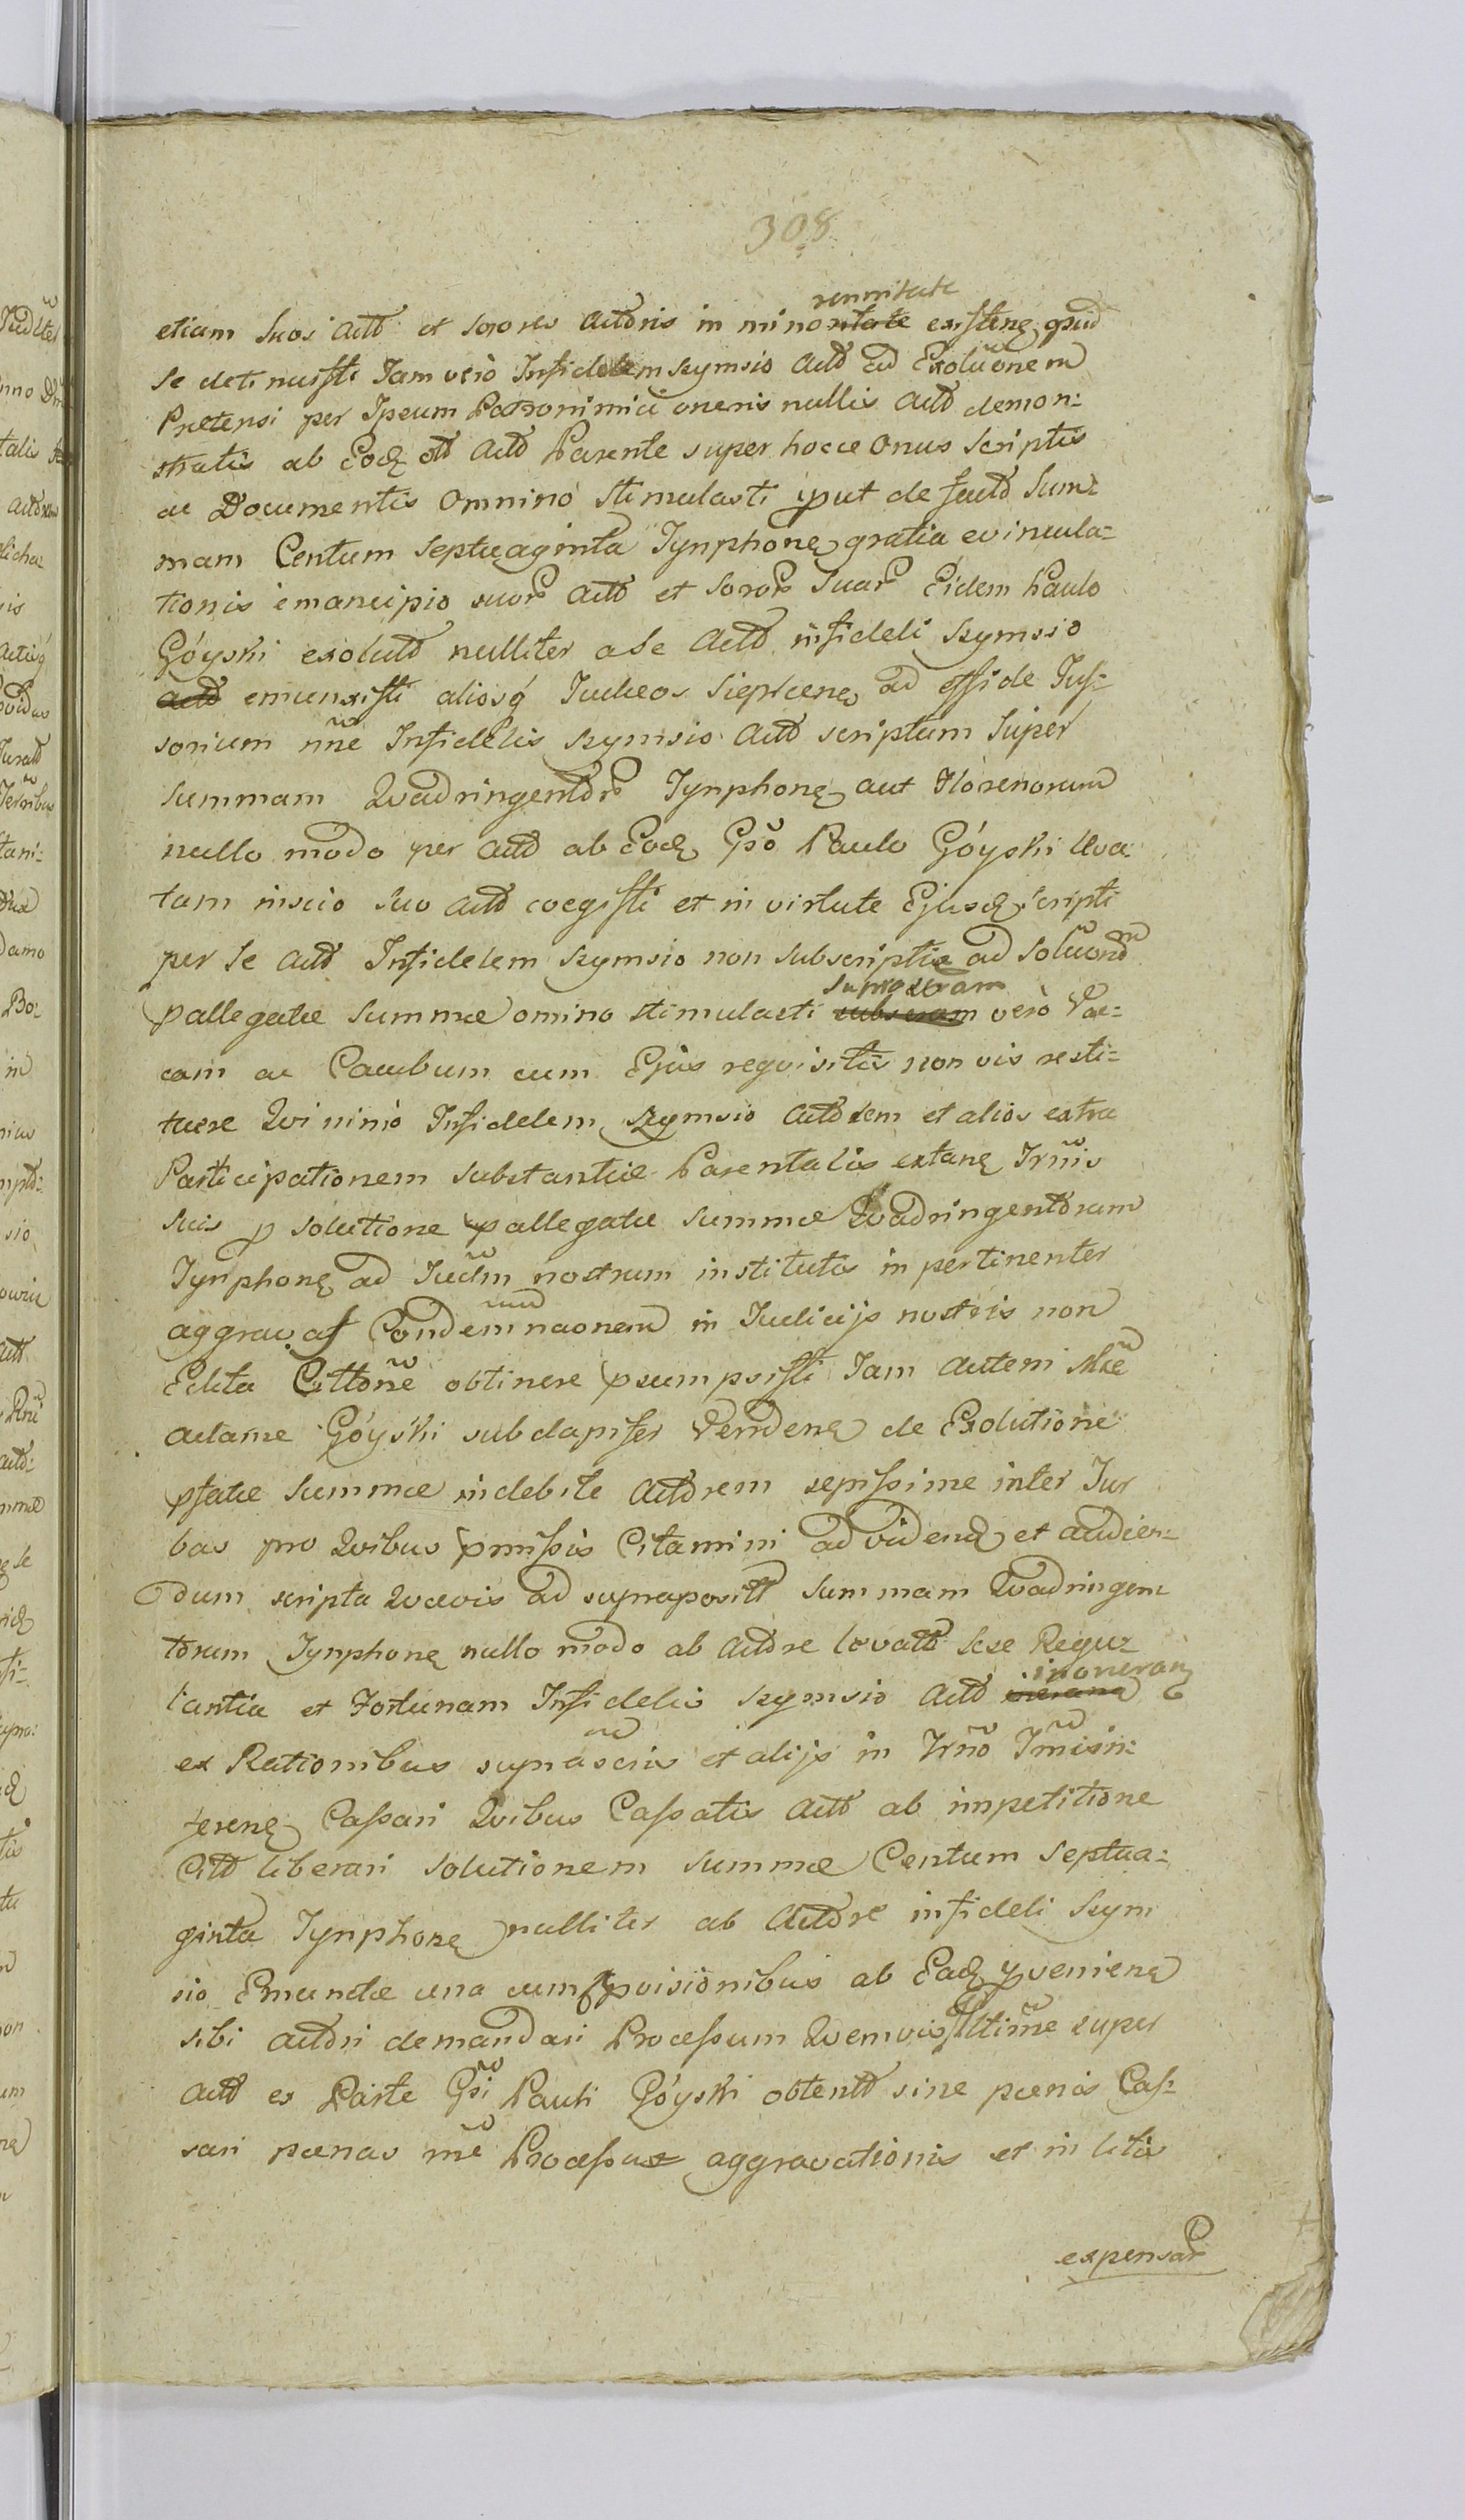 308
etiam suos actō et sorores actōris in minoritate rennitate existenę apud
se detinuisti Jam verò Infidelem Szymsio actō ad Exolũonem
Pretensi per Ipsum Patronimici oneris nullis actō demon:
stratis ab Eodę actō Parente super hocce onus scriptis
ac Documentis Omninò stimulasti put de factō Sum:
mam Centum Septuaginta Tynphonę gratia evincula:
tionis e mancipio suor actō et soror suar Eidem Paulo
Góyski exolutō nulliter a se actō infideli Szymsio
actō emunxisti aliosq́ Judeos Siepłcenę ad offide Jus:
sorium nñe Infidelis Szymsio actō scriptum Super
summam Qvadringentōr Tynphonę aut Florenorum
nullo modo per actō ab Eodę Gsõ Paulo Góyski leva:
tam inscio suo actō coegisti et in virtute Ejusdę scripti
per se actō Infidelem Szymsio non subscriptis ad solũond
pallegatæ Summæ omino stimulasti subseram supraseram verò Vac:
cam ac Cacubum cum Ejus reqvisitis non vis resti:
tuere Qvinimò Infidelem Szymsio actōrem et alios extra
Participationem substantiæ Parentalis extanę Frñis
suis p solutione pallegatæ summæ Qvadringentōrum
Tynphonę ad Judm̃ nostrum institutis inpertinenter
aggravas Condemnaonem in Judicijs nostris non
Edita Cittõne obtinere psumpsisti Jam autem Mce
adame Góyski subdapifer Vendenę de Exolutione
pfatæ Summæ indebite actōrem sepissime inter Tur
bas pro Qvibus pmissis Citamini ad videndę et audien:
dum scripta Qvævis ad supraposit summam Qvadringen
tōrum Tynphonę nullo modo ab actōre levatō sese Regu:
lantia et Fortunam Infidelis Szymsio actō inoneranę
ex Rationibus suprascris et alijs in Trñõ Jm̃isin:
ferenę Cassari Qvibus Cassatis actō ab impetitione
Cittō liberari solutionem summæ Centum Septua:
ginta Tynphonę nulliter ab actōre infideli Szym
sio Emunctæ una cum pvisionibus ab Eadę pvenienę
sibi actōri demandari Processum Qvemvis Ultim̃e super
actō ex Parte Gsi Pauli Góyski obtentō sine pœnis Cas:
sari pœnas m̃e Processus aggravationis et in litis
expensar